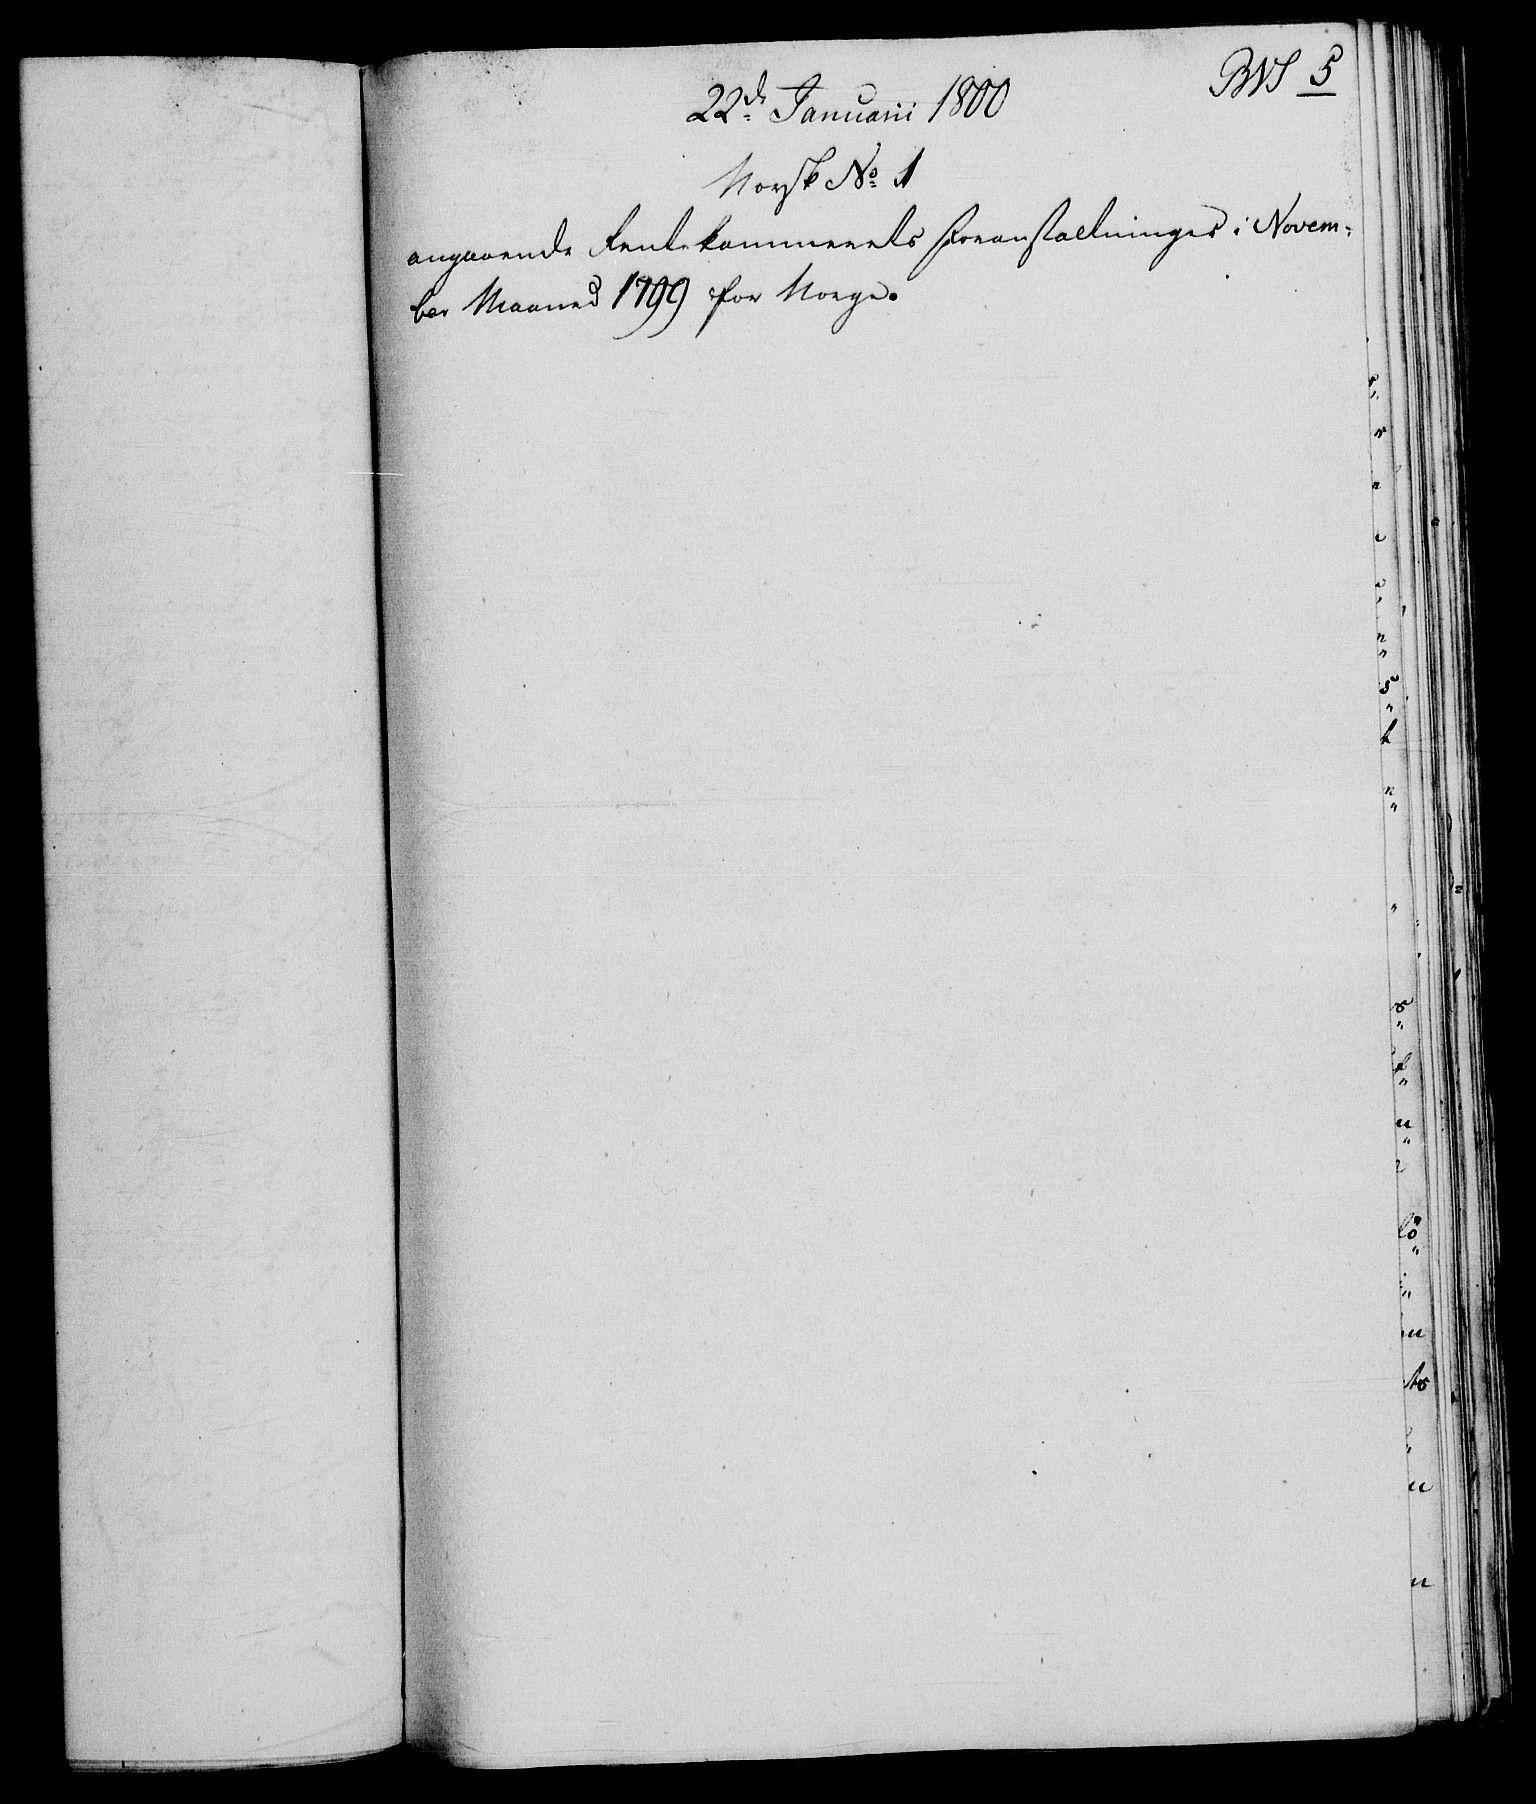 22de Januarii 1800
Norsk No. 1
angaaende Rentekammerets Foranstaltninger i Novem-
ber Maaned 1799 for Norge.